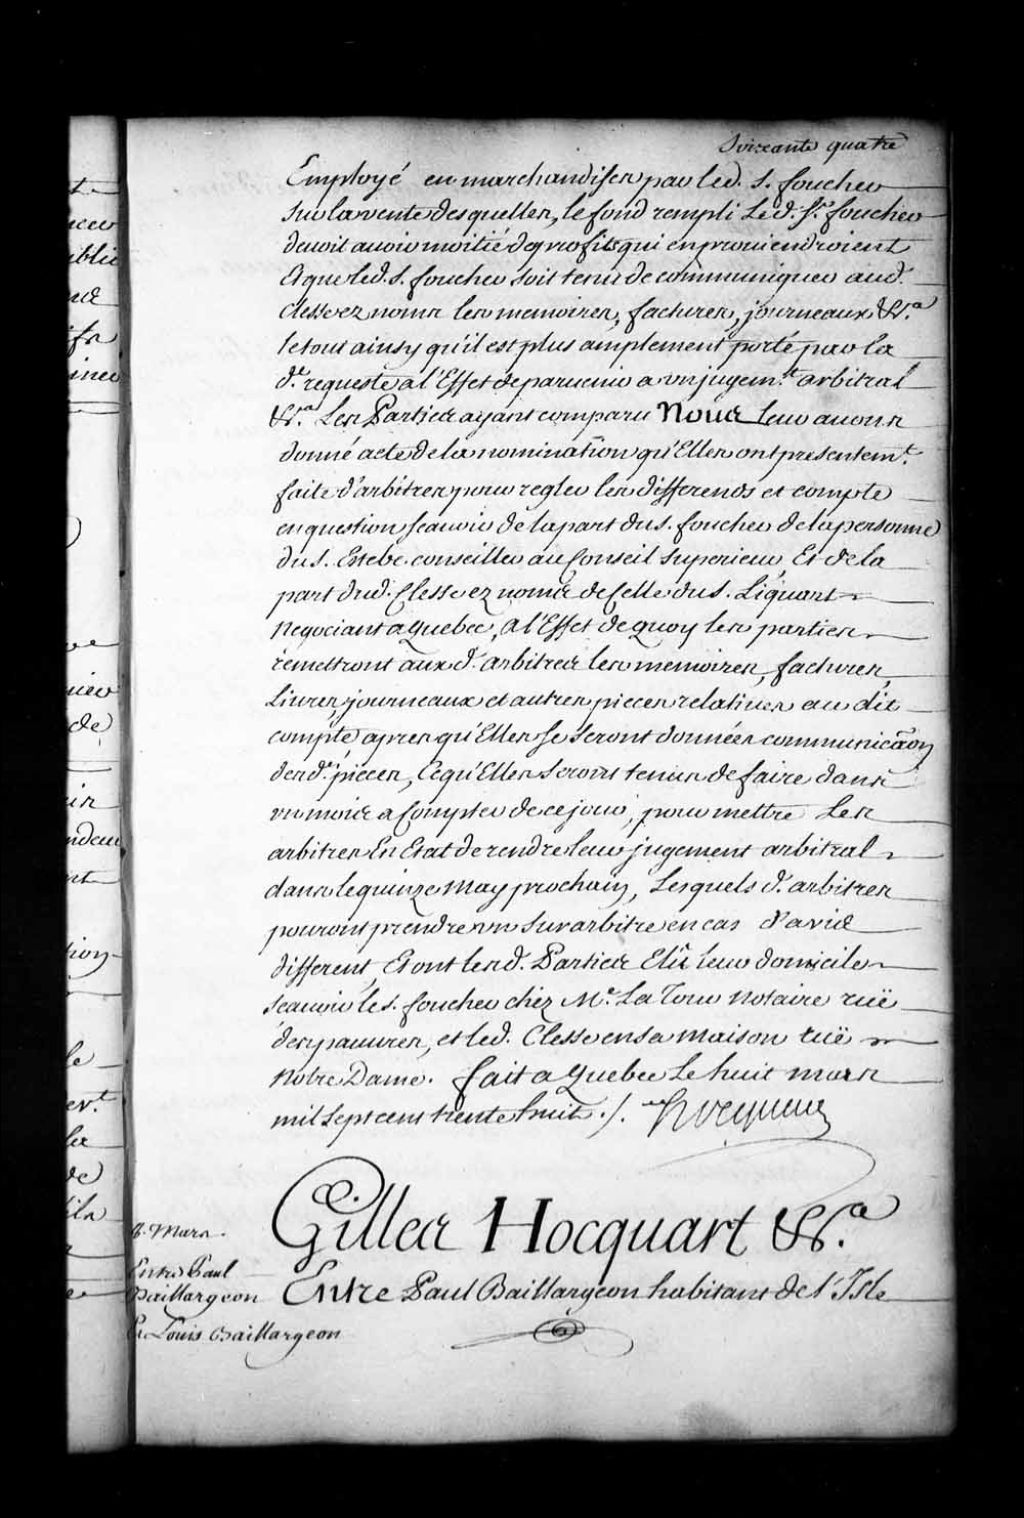 Soixante quatre
Employé en marchandises par led. S. foucher
Sur la vente desquelles, le fond rempli Led. Sr. foucher
devoit avoir moitié des profits qui en proviendroient
Et que led. S. foucher soit tenu de communiquer aud.
Clesse ez noms les memoires, factures, journeaux &c.a
le tout ainsy qu'il est plus amplement porté par la
de. requeste a l'Effet de parvenir a un jugemt. arbitral
&c.a Les Parties ayant comparu Nous leur avons
donné acte de la nomination qu'Elles ont presentemt.
faite d'arbitres pour regler les differends et compte
en question scavoir de la part du S. foucher de la personne
du S. Estebe conseiller au Conseil Superieur, Et de la
part dud. Clesse ez noms de Celle du S. Liquart
Negociant a Quebec, a l'Effet de quoy les parties
remettront aux d. arbitres les memoires, factures,
Livres, journeaux et autres pieces relatives au dit
compte apres qu'Elles se seront données communicaon
desd. pieces, Ce qu'Elles seront tenus de faire dans
un mois a Compter de ce jour, pour mettre Les
arbitres En Etat de rendre leur jugement arbitral
dans le quinze May prochain, Lesquels d. arbitres
pouront prendre un Surarbitre en cas d'avis
different, Et ont lesd. Parties Elû leur domicile
Scavoir le S. foucher chez Me. La Tour Notaire ruë
des pauvres, et led. Clesse en sa maison ruë
Notre Dame. fait a Quebec Le huit mars
mil sept cent trente huit ./. Hocquart
Gilles Hocquart &c.a
8. Mars.
Entre Paul
Baillargeon
Et Louis Baillargeon
Entre Paul Baillargeon habitant de l'Isle